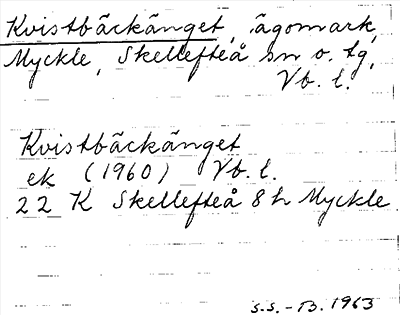 Kvistbäckänget, ägomark,
Myckle, Skellefteå sn o. tg,
Vb. l.
Kvistbäckänget
ek (1960) Vb. l.
22 K Skellefteå 8 h Myckle
S.S. - B. 1963